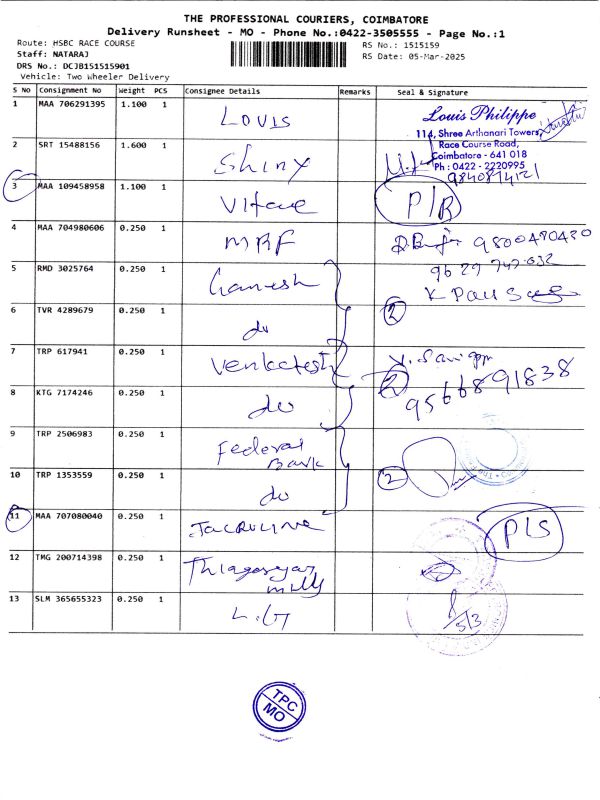 THE PROFESSIONAL COURIERS, COIMBATORE
Delivery Runsheet - MO - Phone No.:0422-3505555 - Page No.:1
Route: HSBC RACE COURSE
Staff: NATARAJ
DRS No.: DCJB151515901
Vehicle: Two Wheeler Delivery
RS No.: 1515159
RS Date: 05-Mar-2025
S No Consignment No Weight PCS Consignee Details Remarks Seal & Signature
1 MAA 706291395 1.100 1 LOUIS
Louis Philippe
114, Shree Arthanari Towers,
Race Course Road,
Coimbatore - 641 018
Ph : 0422 - 2220995
2 SRT 15488156 1.600 1 Shiny
3 MAA 109458958 1.100 1 P/R
4 MAA 704980606 0.250 1 MRF 9800480430
5 RMD 3025764 0.250 1 Ganesh
6 TVR 4289679 0.250 1 do 2
7 TRP 617941 0.250 1 Venkatesh 2
9566891838
8 KTG 7174246 0.250 1 do
9 TRP 2506983 0.250 1 Federal
Bank
10 TRP 1353559 0.250 1 do 2
11 MAA 707080040 0.250 1 P/S
12 TMG 200714398 0.250 1 Thiagarayar
mills
13 SLM 365655323 0.250 1 5/3
TPC
MO